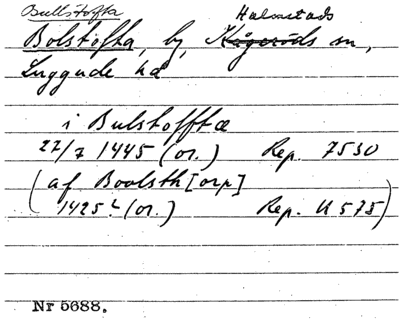 Bullstofta Halmstads
Bolstofta, by, Kågeröds sn,
Luggude hd
i Bulstofftæ
22/7 1445 (or.) Rep. 7530
(af Boolsth[orp]
1425? (or.) Rep. U 575)
Nr 5688.